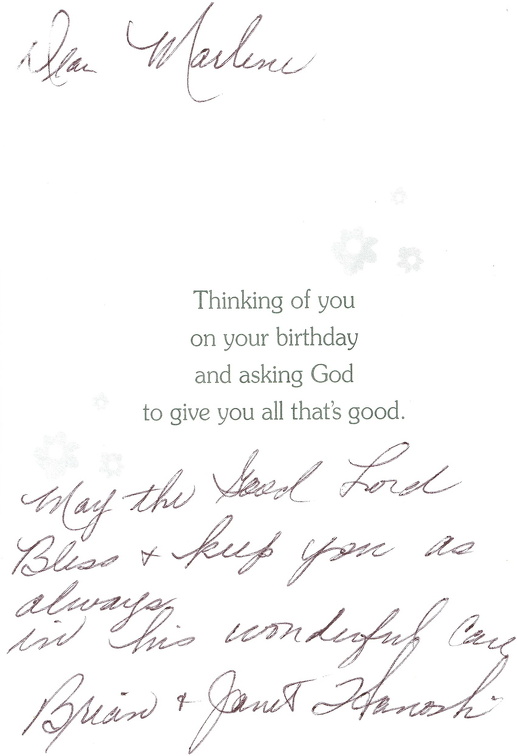 Dear Marlene
Thinking of you
on your birthday
and asking God
to give you all that's good.
May the Good Lord
Bless + keep you as
always
in his wonderful care
Brian + Janet Hanoski